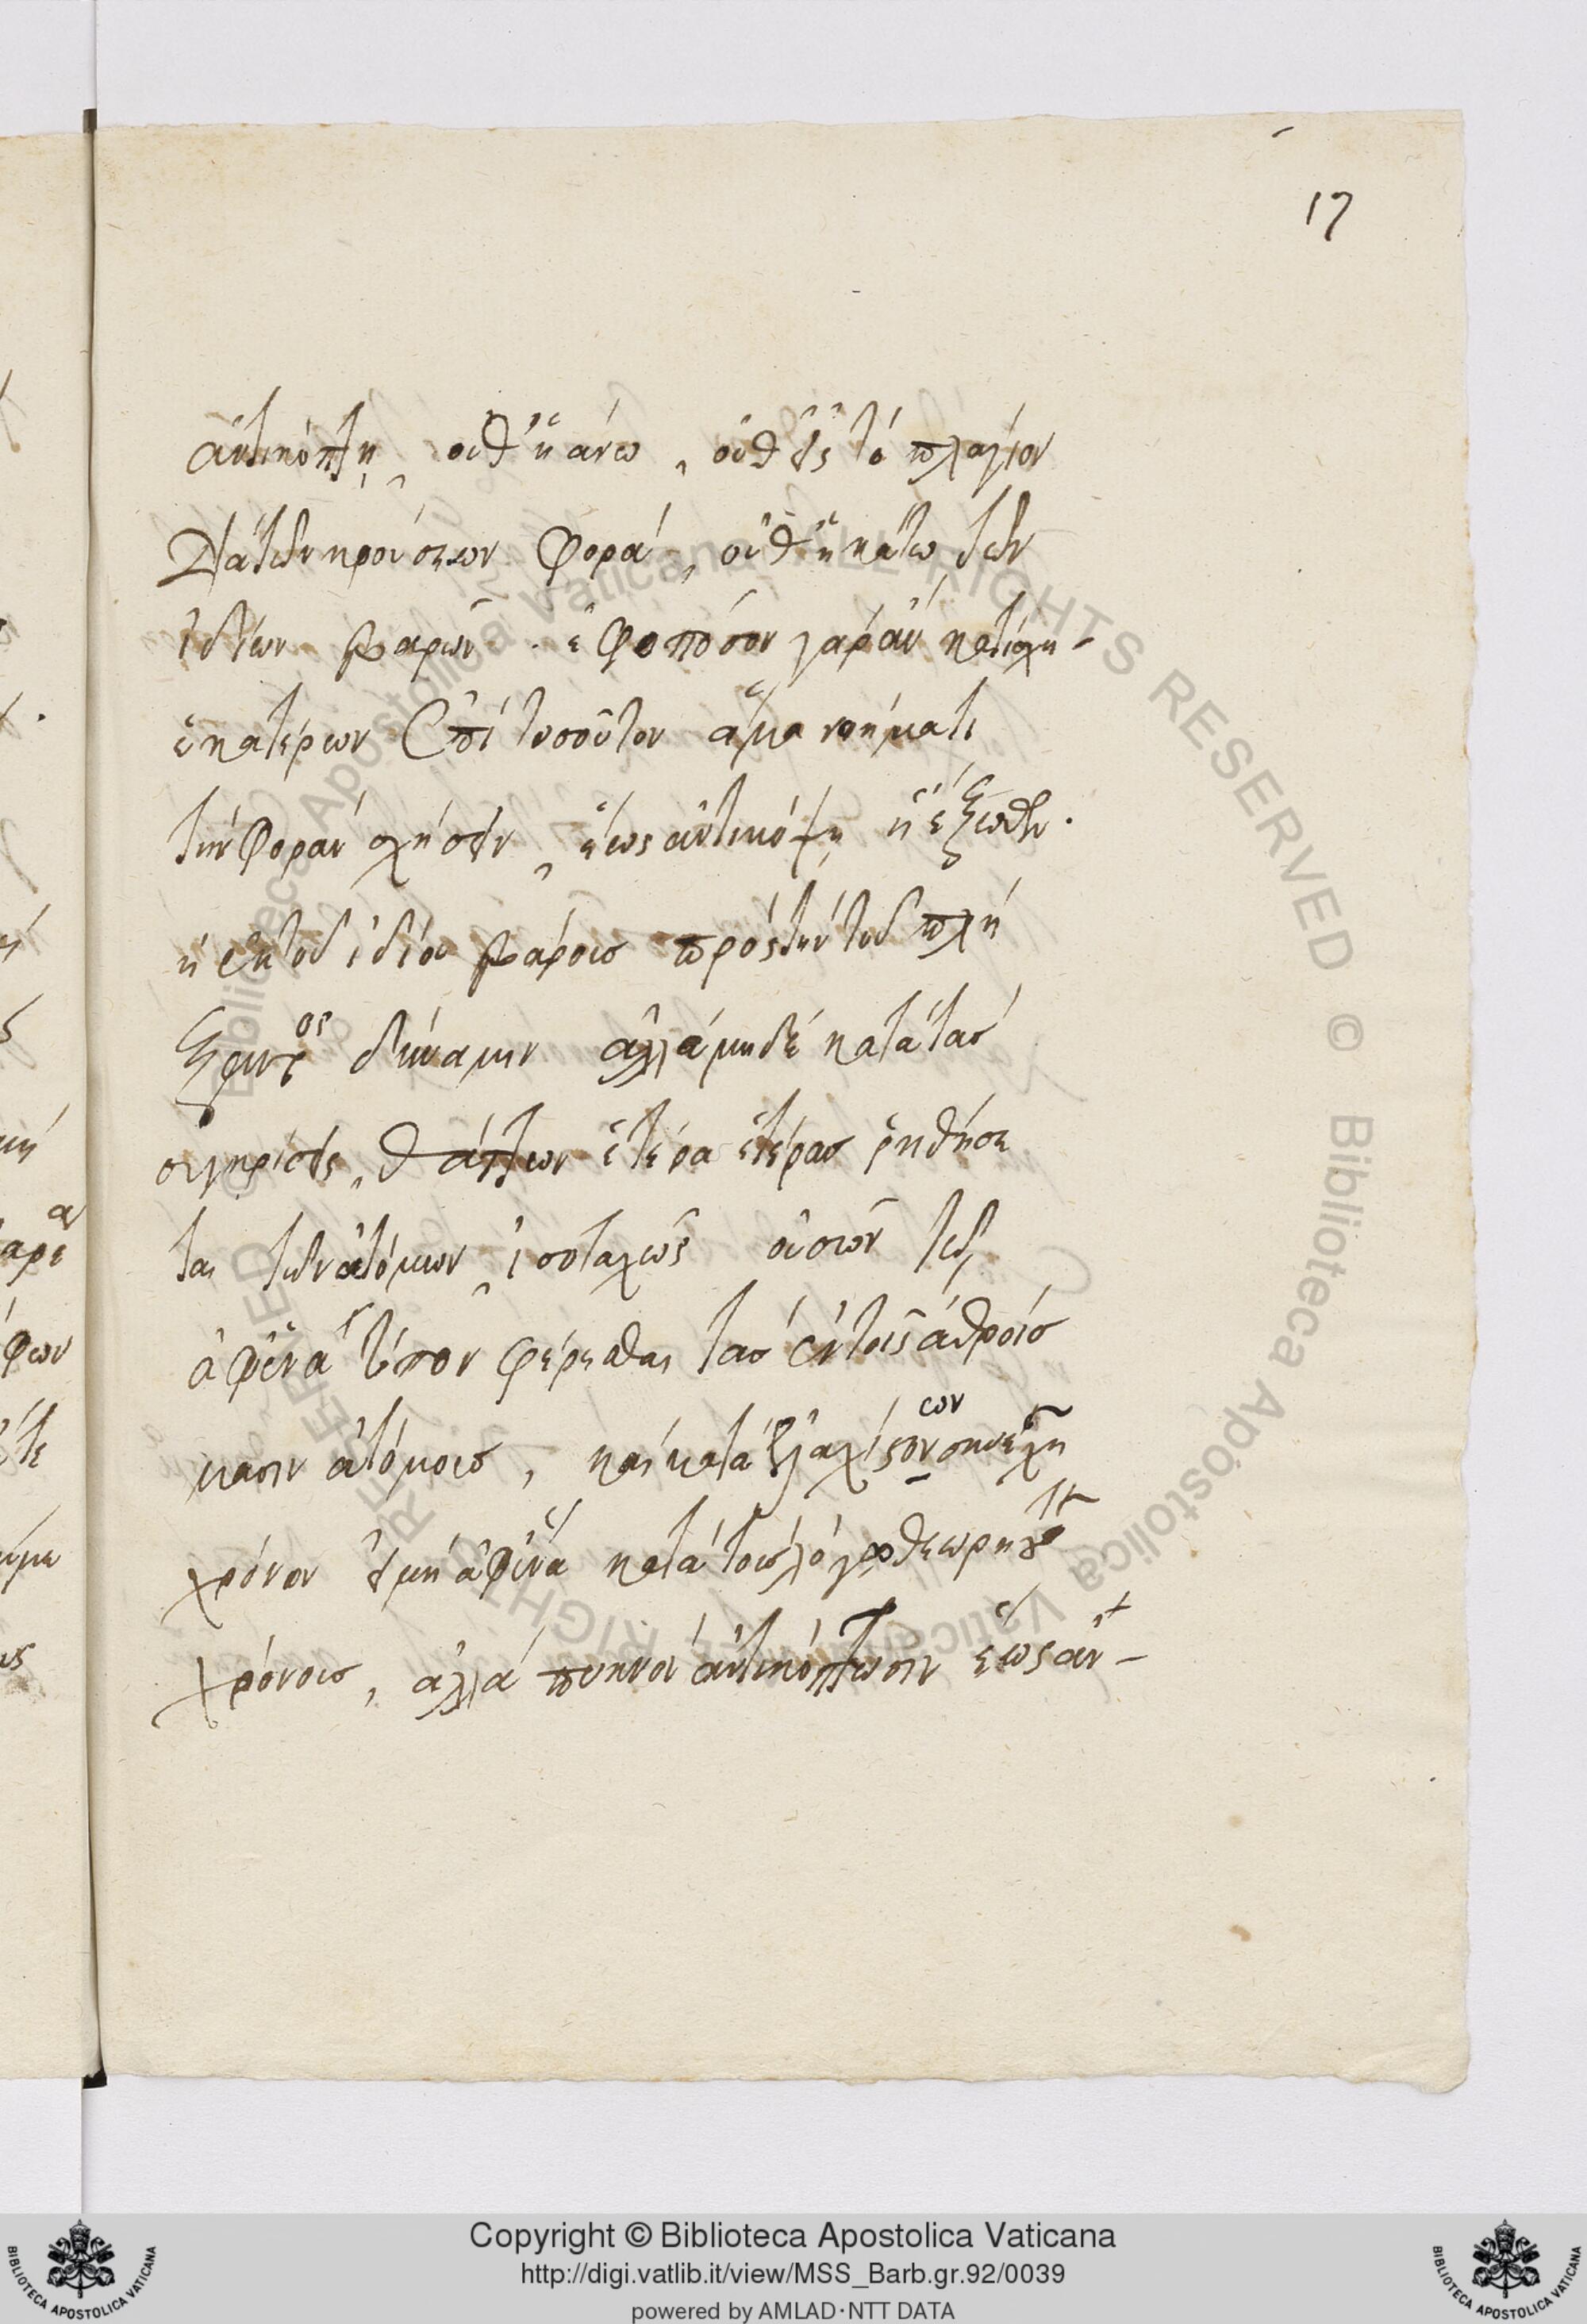 17
ἀντικόπτῃ, οὔθ' ἡ ἄνω, οὔθ' εἰς τὸ πλάγιον
διὰ τῶν κρούσεων φορά, οὔθ' ἡ κάτω τῶν
ἰδίων βαρῶν. ἐφοπόσον γὰρ ἂν κατίσχη-
ἑκατέρων ἐπὶ τοσοῦτον ἅμα νοήματι
τὴν φορὰν σχήσειν, ἕως ἀντικόψῃ ἢ ἔξωθεν.
ἢ ἐκ τοῦ ἰδίου βάρους πρὸς τὴν τοῦ πλή
ξαντος δύναμιν ἀλλὰ μηδὲ κατὰ τὰς
συγκρίσεις, θάττων ἑτέρα ἑτέρας ῥηθήσε
ται τῶν ἀτόμων, ἰσοταχῶς οὐσῶν τῷ
ἀφ' ἕνα τόπον φέρεσθαι τὰς ἐν τοῖς ἀθροίσ
μασιν ἀτόμους, καὶ κατὰ ἐλάχιστον συνεχῆ
ων
χρόνον εἰ μὴ ἀφ' ἕνα κατὰ τοὺς λόγῳ θεωρητοὺς
χρόνους, ἀλλὰ πυκνὸν ἀντικόπτωσιν ἕως ἂν-
Copyright © Biblioteca Apostolica Vaticana
http://digi.vatlib.it/view/MSS_Barb.gr.92/0039
powered by AMLAD·NTT DATA
BIBLIOTECA APOSTOLICA VATICANA
BIBLIOTECA APOSTOLICA VATICANA
© Biblioteca Apostolica Vaticana ALL RIGHTS RESERVED © Biblioteca Apostolica Vaticana ALL RIGHTS RESERVED